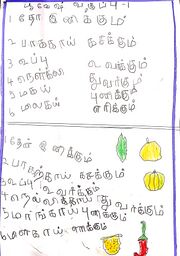 வகுப்பு -1
1 தேன் இனிக்கும்
2 பாகற்காய் கசக்கும்
3 உப்பு உவக்கும்
4 நெல்லி துவர்க்கும்
5 புளிக்கும்
6 எரிக்கும்
1 தேன் இனிக்கும்
2 பாகற்காய் கசக்கும்
3 உப்பு உவர்க்கும்
4 நெல்லிக்காய் துவர்க்கும்
5 மாங்காய் புளிக்கும்
6 மிளகாய் எரிக்கும்